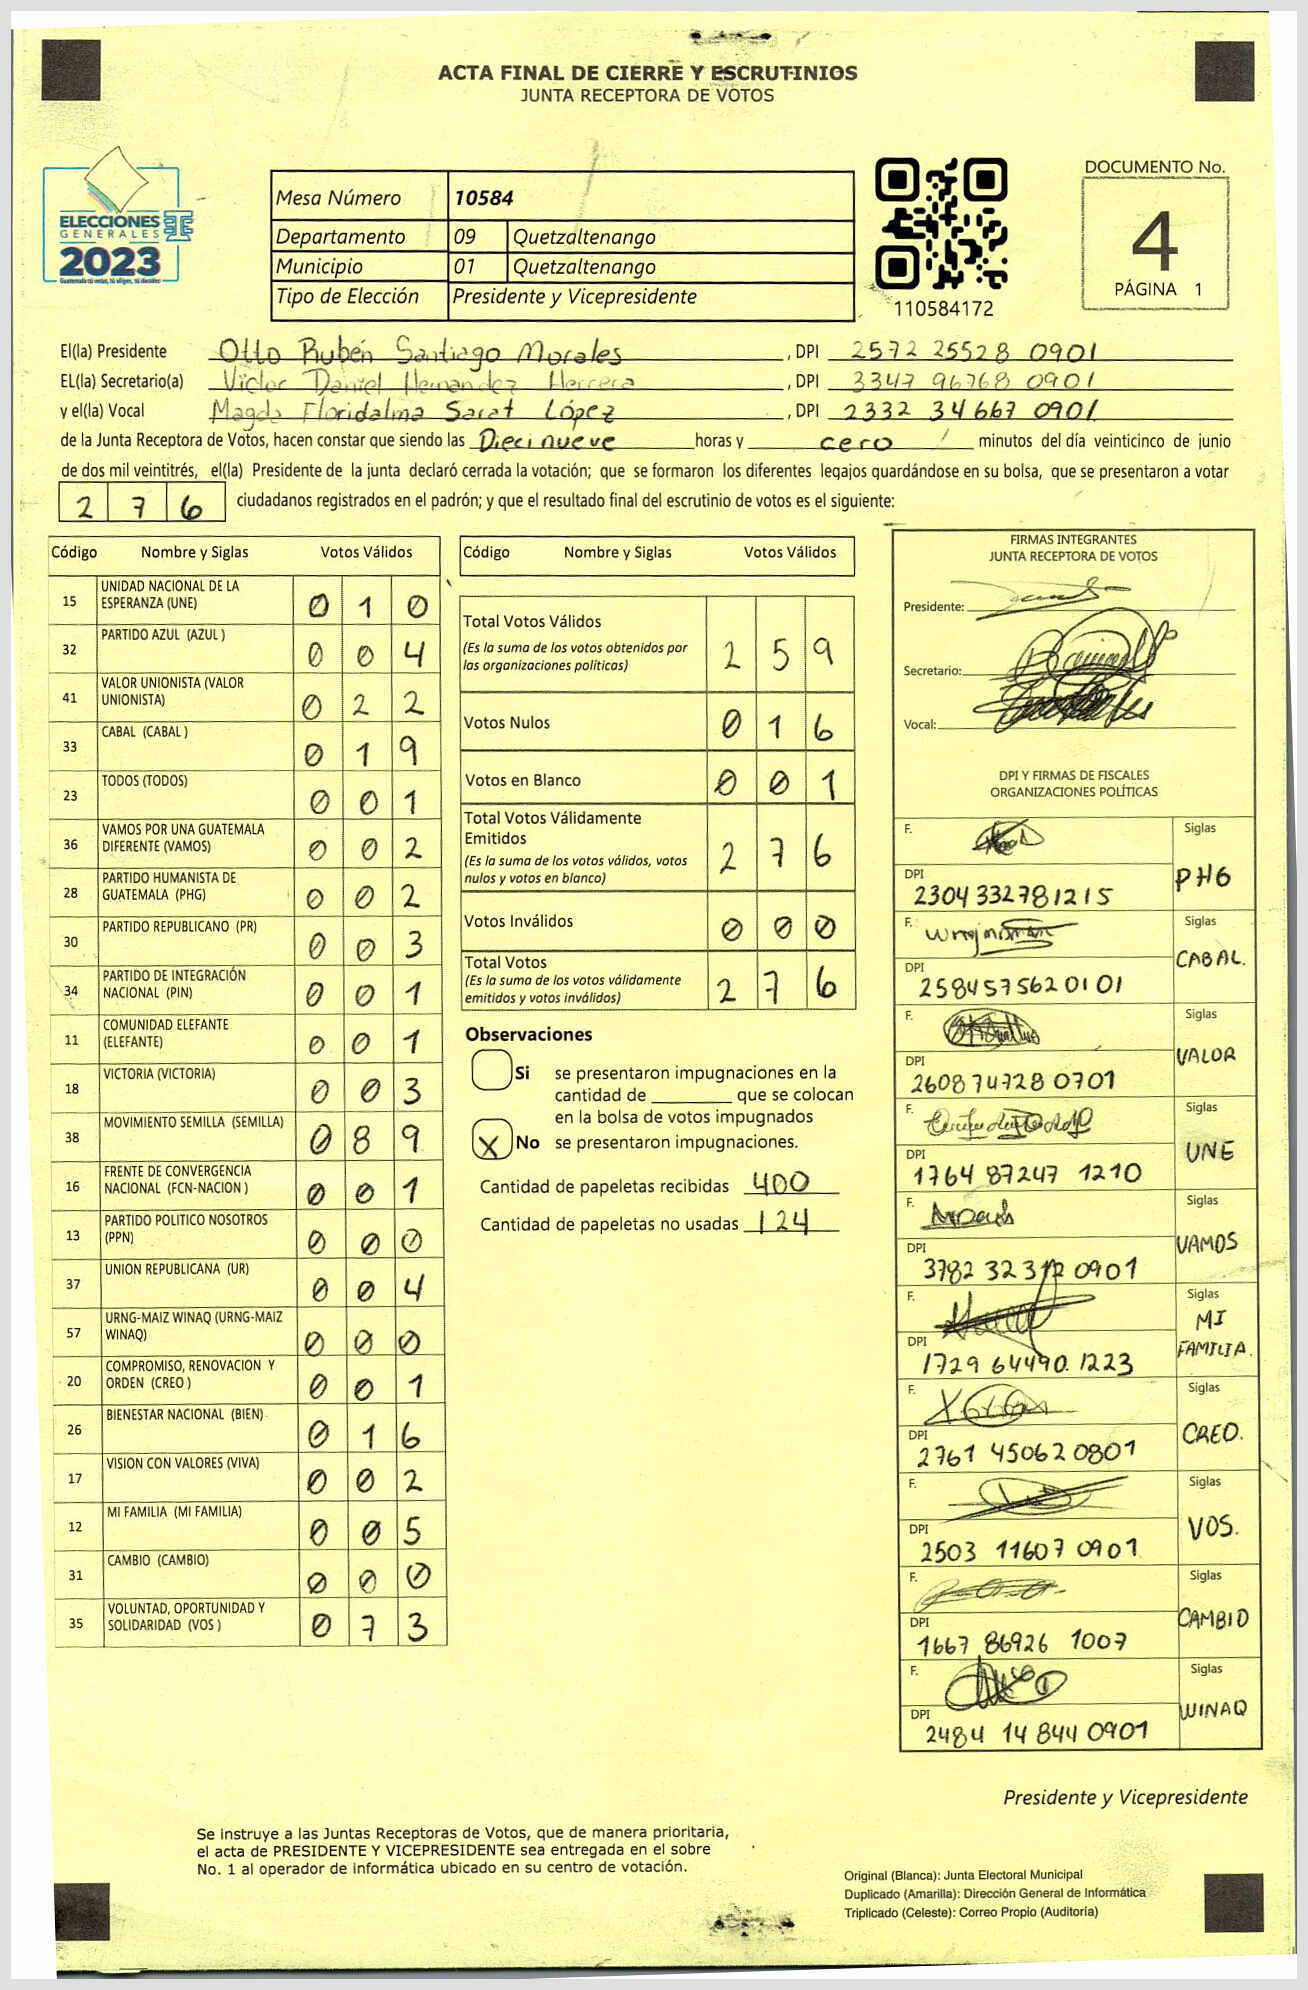 ACTA FINAL DE CIERRE Y ESCRUTINIOS
JUNTA RECEPTORA DE VOTOS
ELECCIONES
GENERALES
2023
Guatemala tú votas, tú eliges, tú decides
Mesa Número 10584
Departamento 09 Quetzaltenango
Municipio 01 Quetzaltenango
Tipo de Elección Presidente y Vicepresidente
110584172
DOCUMENTO No.
4
PÁGINA 1
El(la) Presidente Otto Rubén Santiago Morales , DPI 2572 25528 0901
EL(la) Secretario(a) Victor Daniel Hernandez Herrera , DPI 3347 96768 0901
y el(la) Vocal Magda Floridalma Sarat López , DPI 2332 34667 0901
de la Junta Receptora de Votos, hacen constar que siendo las Diecinueve horas y cero minutos del día veinticinco de junio
de dos mil veintitrés, el(la) Presidente de la junta declaró cerrada la votación; que se formaron los diferentes legajos quardándose en su bolsa, que se presentaron a votar
276 ciudadanos registrados en el padrón; y que el resultado final del escrutinio de votos es el siguiente:
Código Nombre y Siglas Votos Válidos
15 UNIDAD NACIONAL DE LA ESPERANZA (UNE) 010
32 PARTIDO AZUL (AZUL ) 004
41 VALOR UNIONISTA (VALOR UNIONISTA) 022
33 CABAL (CABAL ) 019
23 TODOS (TODOS) 001
36 VAMOS POR UNA GUATEMALA DIFERENTE (VAMOS) 002
28 PARTIDO HUMANISTA DE GUATEMALA (PHG) 002
30 PARTIDO REPUBLICANO (PR) 003
34 PARTIDO DE INTEGRACIÓN NACIONAL (PIN) 001
11 COMUNIDAD ELEFANTE (ELEFANTE) 001
18 VICTORIA (VICTORIA) 003
38 MOVIMIENTO SEMILLA (SEMILLA) 089
16 FRENTE DE CONVERGENCIA NACIONAL (FCN-NACION ) 001
13 PARTIDO POLITICO NOSOTROS (PPN) 000
37 UNION REPUBLICANA (UR) 004
57 URNG-MAIZ WINAQ (URNG-MAIZ WINAQ) 000
20 COMPROMISO, RENOVACION Y ORDEN (CREO ) 001
26 BIENESTAR NACIONAL (BIEN) 016
17 VISION CON VALORES (VIVA) 002
12 MI FAMILIA (MI FAMILIA) 005
31 CAMBIO (CAMBIO) 000
35 VOLUNTAD, OPORTUNIDAD Y SOLIDARIDAD (VOS ) 073
Código Nombre y Siglas Votos Válidos
Total Votos Válidos
(Es la suma de los votos obtenidos por
las organizaciones políticas) 259
Votos Nulos 016
Votos en Blanco 001
Total Votos Válidamente
Emitidos
(Es la suma de los votos válidos, votos
nulos y votos en blanco) 276
Votos Inválidos 000
Total Votos
(Es la suma de los votos válidamente
emitidos y votos inválidos) 276
Observaciones
Si se presentaron impugnaciones en la
cantidad de ________ que se colocan
en la bolsa de votos impugnados
X No se presentaron impugnaciones.
Cantidad de papeletas recibidas 400
Cantidad de papeletas no usadas 124
FIRMAS INTEGRANTES
JUNTA RECEPTORA DE VOTOS
Presidente:
Secretario:
Vocal:
DPI Y FIRMAS DE FISCALES
ORGANIZACIONES POLÍTICAS
F. Siglas
DPI 2304 33278 1215 PHG
F. Siglas
DPI 2584575620101 CABAL.
F. Siglas
DPI 2608747280701 VALOR
F. Siglas
DPI 1764 87247 1210 UNE
F. Siglas
DPI 3782 32312 0901 VAMOS
F. Siglas
DPI 1729 64490. 1223 MI FAMILIA.
F. Siglas
DPI 2761 45062 0801 CREO.
F. Siglas
DPI 2503 11607 0901 VOS.
F. Siglas
DPI 1667 86926 1007 CAMBIO
F. Siglas
DPI 2484 14 844 0901 WINAQ
Presidente y Vicepresidente
Se instruye a las Juntas Receptoras de Votos, que de manera prioritaria,
el acta de PRESIDENTE Y VICEPRESIDENTE sea entregada en el sobre
No. 1 al operador de informática ubicado en su centro de votación.
Original (Blanca): Junta Electoral Municipal
Duplicado (Amarilla): Dirección General de Informática
Triplicado (Celeste): Correo Propio (Auditoría)